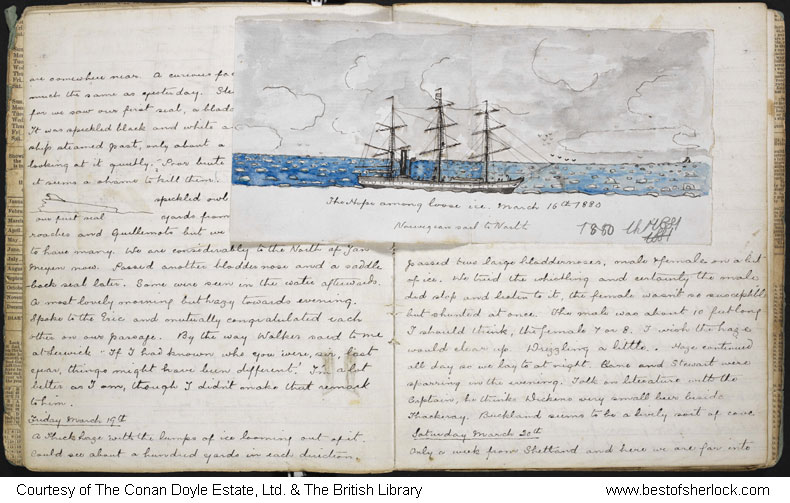 are somewhere near. A curious
much the same as yesterday.
for we saw our first seal, a
It was speckled black and white
ship steamed past, only about a
looking at it quietly. Poor
it seems a shame to kill them.
speckled owl
our first seal
yards from
roaches and Guillemots but we
to have many. We are considerably to the North of Jan
Meyen now. Passed another bladdernose and a saddle
back seal later. Some were seen in the water afterwards.
A most lovely morning but hazy towards evening.
Spoke to the Eric and mutually congratulated each
other on our passage. By the way Walker said to me
at Lerwick "If I had known who you were, sir, last
year, things might have been different." I'm a bit
better as I am, though I didn't make that remark
to him.
Friday March 19th
A Thick haze with the lumps of ice looming out of it.
Could see about a hundred yards in each direction.
The Hope among loose ice. March 16th 1880
Norwegian sail to North
1880
passed two large bladdernoses, male & female on a bit
of ice. We tried the whistling and certainly the male
did stop and listen to it, the female wasn't so susceptible
but shunted at once. The male was about 10 feet long
I should think, the female 7 or 8. I wish the haze
would clear up. Drizzling a little. Haze continued
all day so we lay to at night. Bane and Stewart were
sparring in the evening. Talk on literature with the
Captain, he thinks Dickens very small beer beside
Thackeray. Buckland seems to be a lively sort of cove
Saturday March 20th
Only a week from Shetland and here we are far into
Courtesy of The Conan Doyle Estate, Ltd. & The British Library
www.bestofsherlock.com